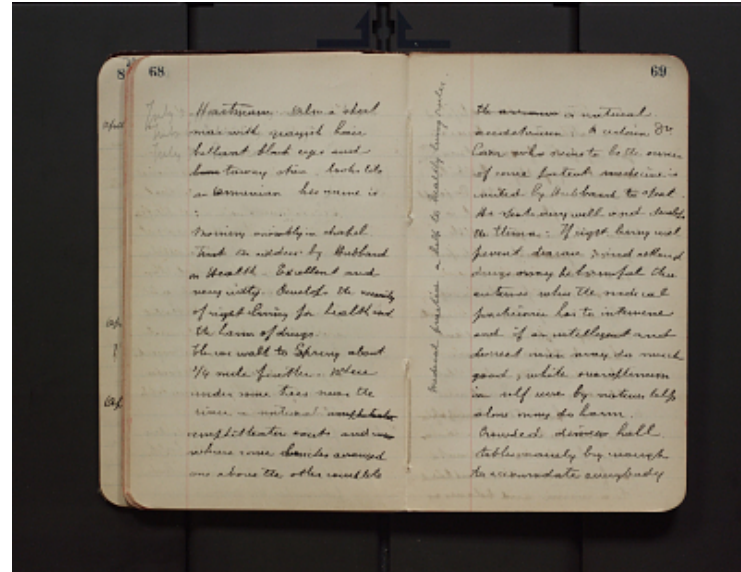 68
Hartmann also a short
man with grayish hair
brilliant black eyes and
tawny skin. Looks like
an Armenian his name is
:
Morning assembly in chapel
Treat an address by Hubbard
on Health. Excellent and
very witty. Develops the necessity
of right living for health and
the harm of drugs.
Then we walk to Spring about
1/4 mile further. Where
under some trees near the
river a natural
amphitheater exists and
where some benches arranged
one above the other complete
medical practice a help to healthy living rules.
69
the a natural
auditorium. A certain Dr
who seems to be the owner
of some patent medicine is
invited by Hubbard to speak.
He speaks very well and develops
the theme: If right living will
prevent disease and
drugs may be harmful there
where the medical
practitioner has to intervene
and if an intelligent and
discreet man may do much
good, while overconfidence
in self cure by natures help
alone may do harm.
Crowded dinner hall.
tables merely by enough
to accomodate everybody